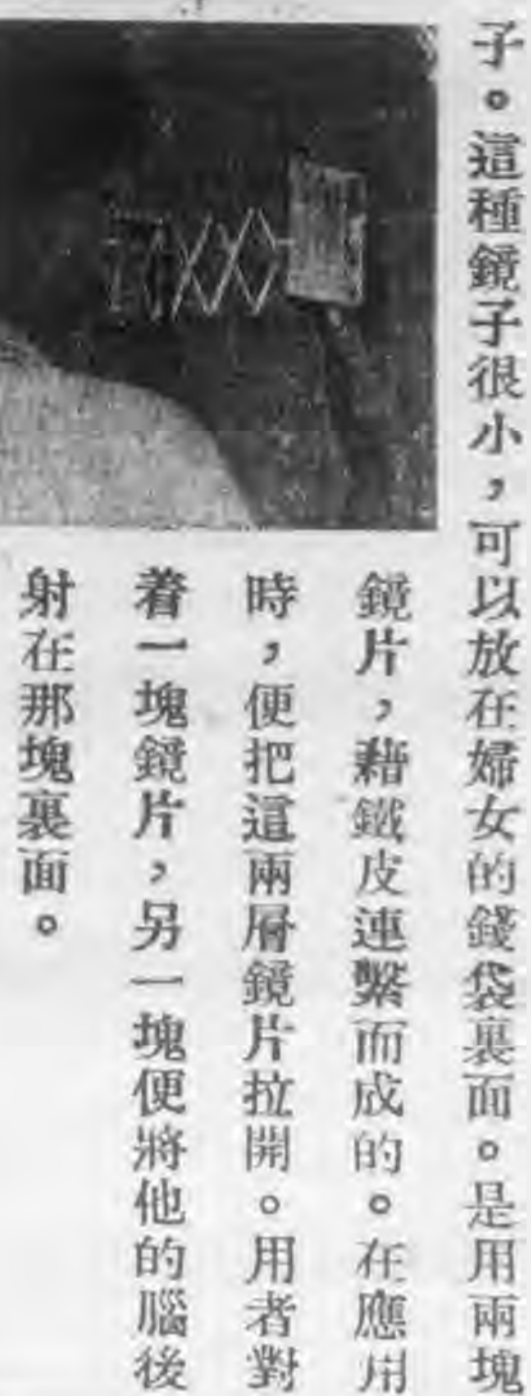 子。這種鏡子很小，可以放在婦女的錢袋裏面。是用兩塊
鏡片，藉鐵皮連繫而成的。在應用
時，便把這兩層鏡片拉開。用者對
着一塊鏡片，另一塊便將他的腦後
射在那塊裏面。